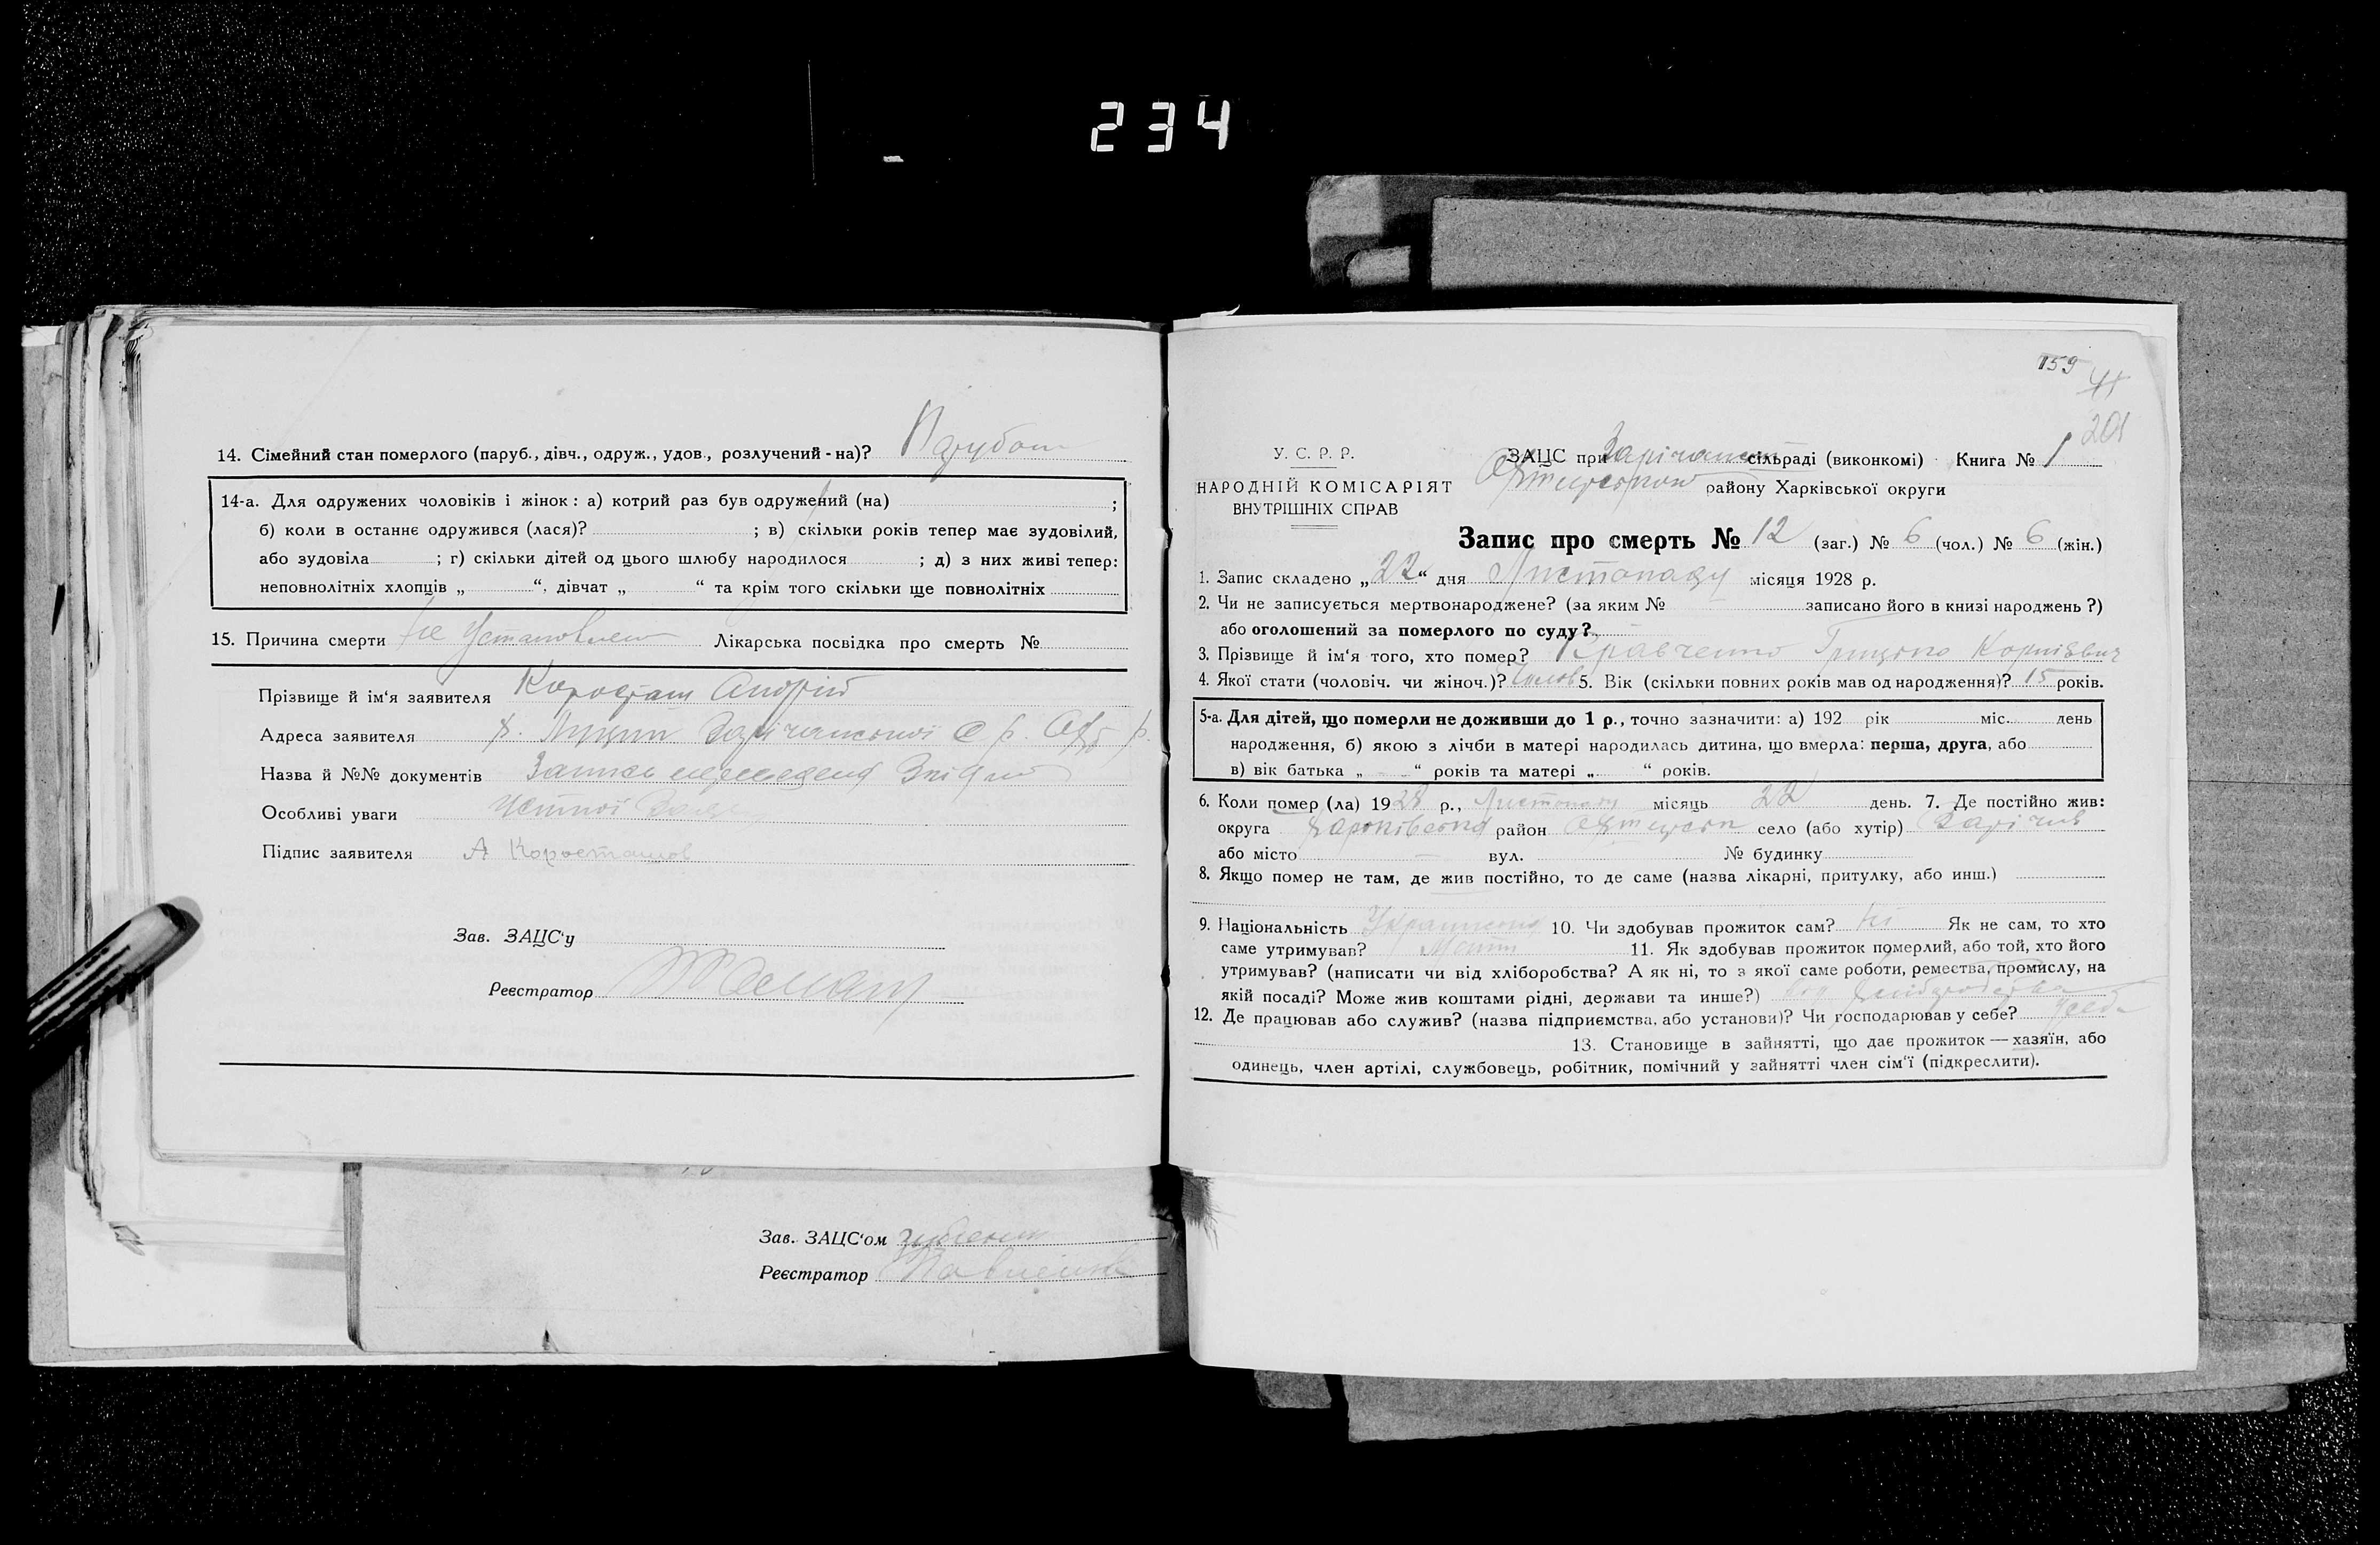 234
14. Сімейний стан померлого (паруб., дівч., одруж., удов., розлучений - на)? Парубок
14-а. Для одружених чоловіків і жінок: а) котрий раз був одружений (на) ;
б) коли в останнє одружився (лася)? ; в) скільки років тепер має зудовілий,
або зудовіла ; г) скільки дітей од цього шлюбу народилося ; д) з них живі тепер:
неповнолітніх хлопців „ “, дівчат „ “ та крім того скільки ще повнолітніх
15. Причина смерти Не Установлен Лікарська посвідка про смерть №
Прізвище й ім‘я заявителя Андрій
Адреса заявителя х. С р. р.
Назва й №№ документів Запись Згідно
Особливі уваги Устної
Підпис заявителя А
Зав. ЗАЦС‘у
Реєстратор
Зав. ЗАЦС‘ом
Реєстратор
159
41
201
У. С. Р. Р.
НАРОДНІЙ КОМІСАРІЯТ
ВНУТРІШНІХ СПРАВ
ЗАЦС при сільраді (виконкомі) Книга № 1
району Харківської округи
Запис про смерть № 12 (заг.) № 6 (чол.) № 6 (жін.)
1. Запис складено „22“ дня Листопаду місяця 1928 р.
2. Чи не записується мертвонароджене? (за яким № записано його в книзі народжень ?)
або оголошений за померлого по суду?
3. Прізвище й ім‘я того, хто помер? Кравченко Грицько Корніявич
4. Якої стати (чоловіч. чи жіноч.)? Чолов 5. Вік (скільки повних років мав од народження)? 15 років.
5-а. Для дітей, що померли не доживши до 1 р., точно зазначити: а) 192 рік міс. день
народження, б) якою з лічби в матері народилась дитина, що вмерла: перша, друга, або
в) вік батька „ “ років та матері „ “ років.
6. Коли помер (ла) 1928 р., Листопаду місяць 22 день. 7. Де постійно жив:
округа Харківська район село (або хутір)
або місто вул. № будинку
8. Якщо помер не там, де жив постійно, то де саме (назва лікарні, притулку, або инш.)
9. Національність 10. Чи здобував прожиток сам? Ні Як не сам, то хто
саме утримував? Мати 11. Як здобував прожиток померлий, або той, хто його
утримував? (написати чи від хліборобства? А як ні, то з якої саме роботи, ремества, промислу, на
якій посаді? Може жив коштами рідні, держави та инше?) Від хліборобства
12. Де працював або служив? (назва підприємства, або установи)? Чи господарював у себе? у себе
13. Становище в зайнятті, що дає прожиток — хазяїн, або
одинець, член артілі, службовець, робітник, помічний у зайнятті член сім‘ї (підкреслити).